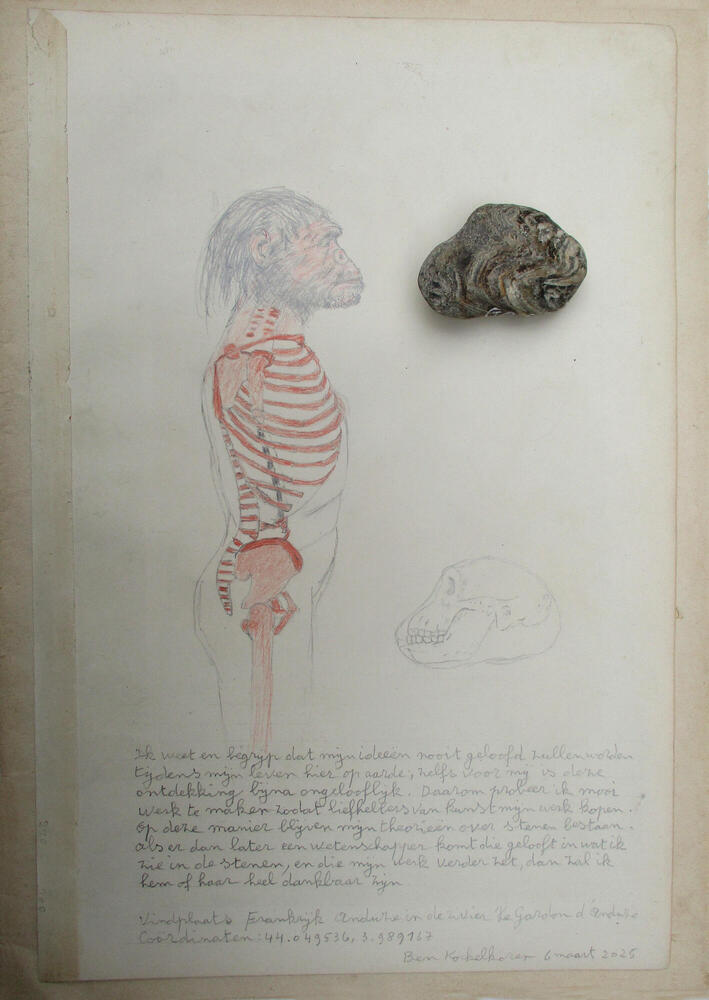 Ik weet en begrijp dat mijn ideeën nooit geloofd zullen worden
tijdens mijn leven hier op aarde; zelfs voor mij is deze
ontdekking bijna ongelooflijk. Daarom probeer ik mooi
werk te maken zodat liefhebbers van kunst mijn werk kopen.
Op deze manier blijven mijn theorieën over stenen bestaan.
als er dan later een wetenschapper komt die gelooft in wat ik
zie in de stenen, en die mijn werk verder zet, dan zal ik
hem of haar heel dankbaar zijn
Vindplaats Frankrijk Anduze in de rivier Le Gardon d'Anduze
Coördinaten: 44.049536, 3.989167
Ben Kockelkoren 6 maart 2025